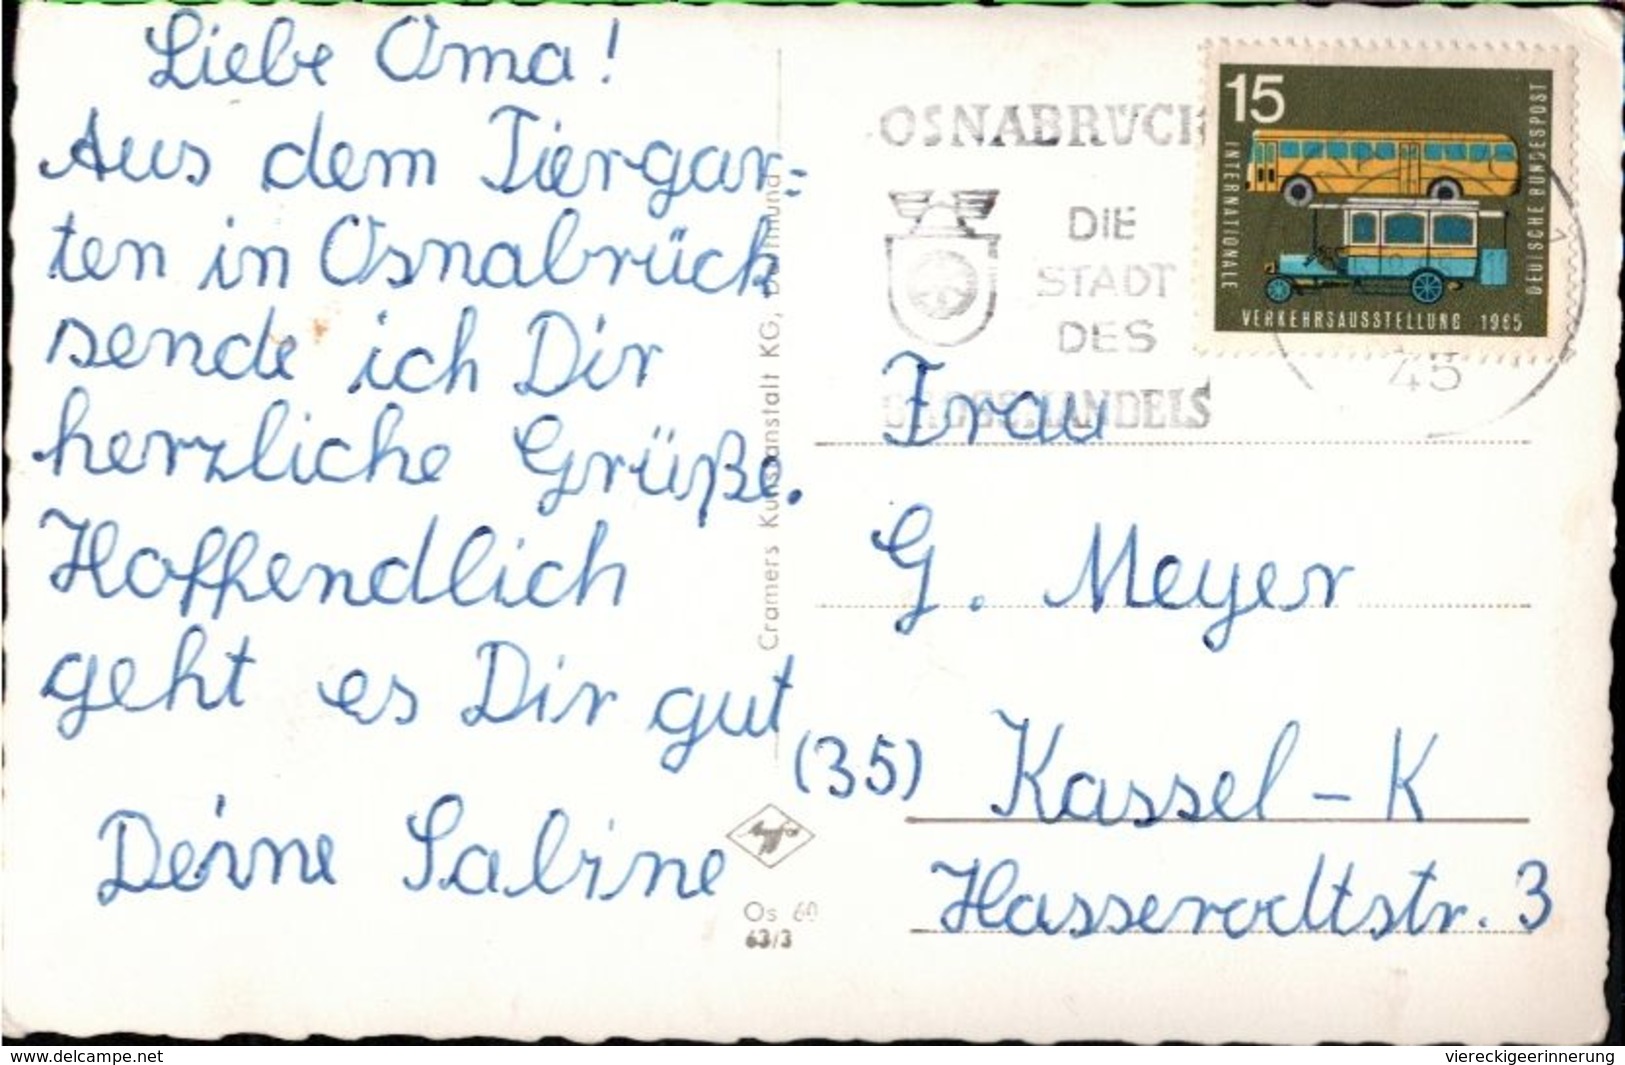 Liebe Oma!
Aus dem Tiergar=
ten in Osnabrück
sende ich Dir
herzliche Grüße.
Hoffendlich
geht es Dir gut
Deine Sabine
Cramers Kunstanstalt KG, Dortmund
Agfa
Os 60
63/3
OSNABRÜCK
DIE
STADT
DES
GROSSHANDELS
45
15
INTERNATIONALE
VERKEHRSAUSSTELLUNG 1965
DEUTSCHE BUNDESPOST
Frau
G. Meyer
(35) Kassel-K
Hasserodtstr. 3
delcampe.net
viereckigeerinnerung